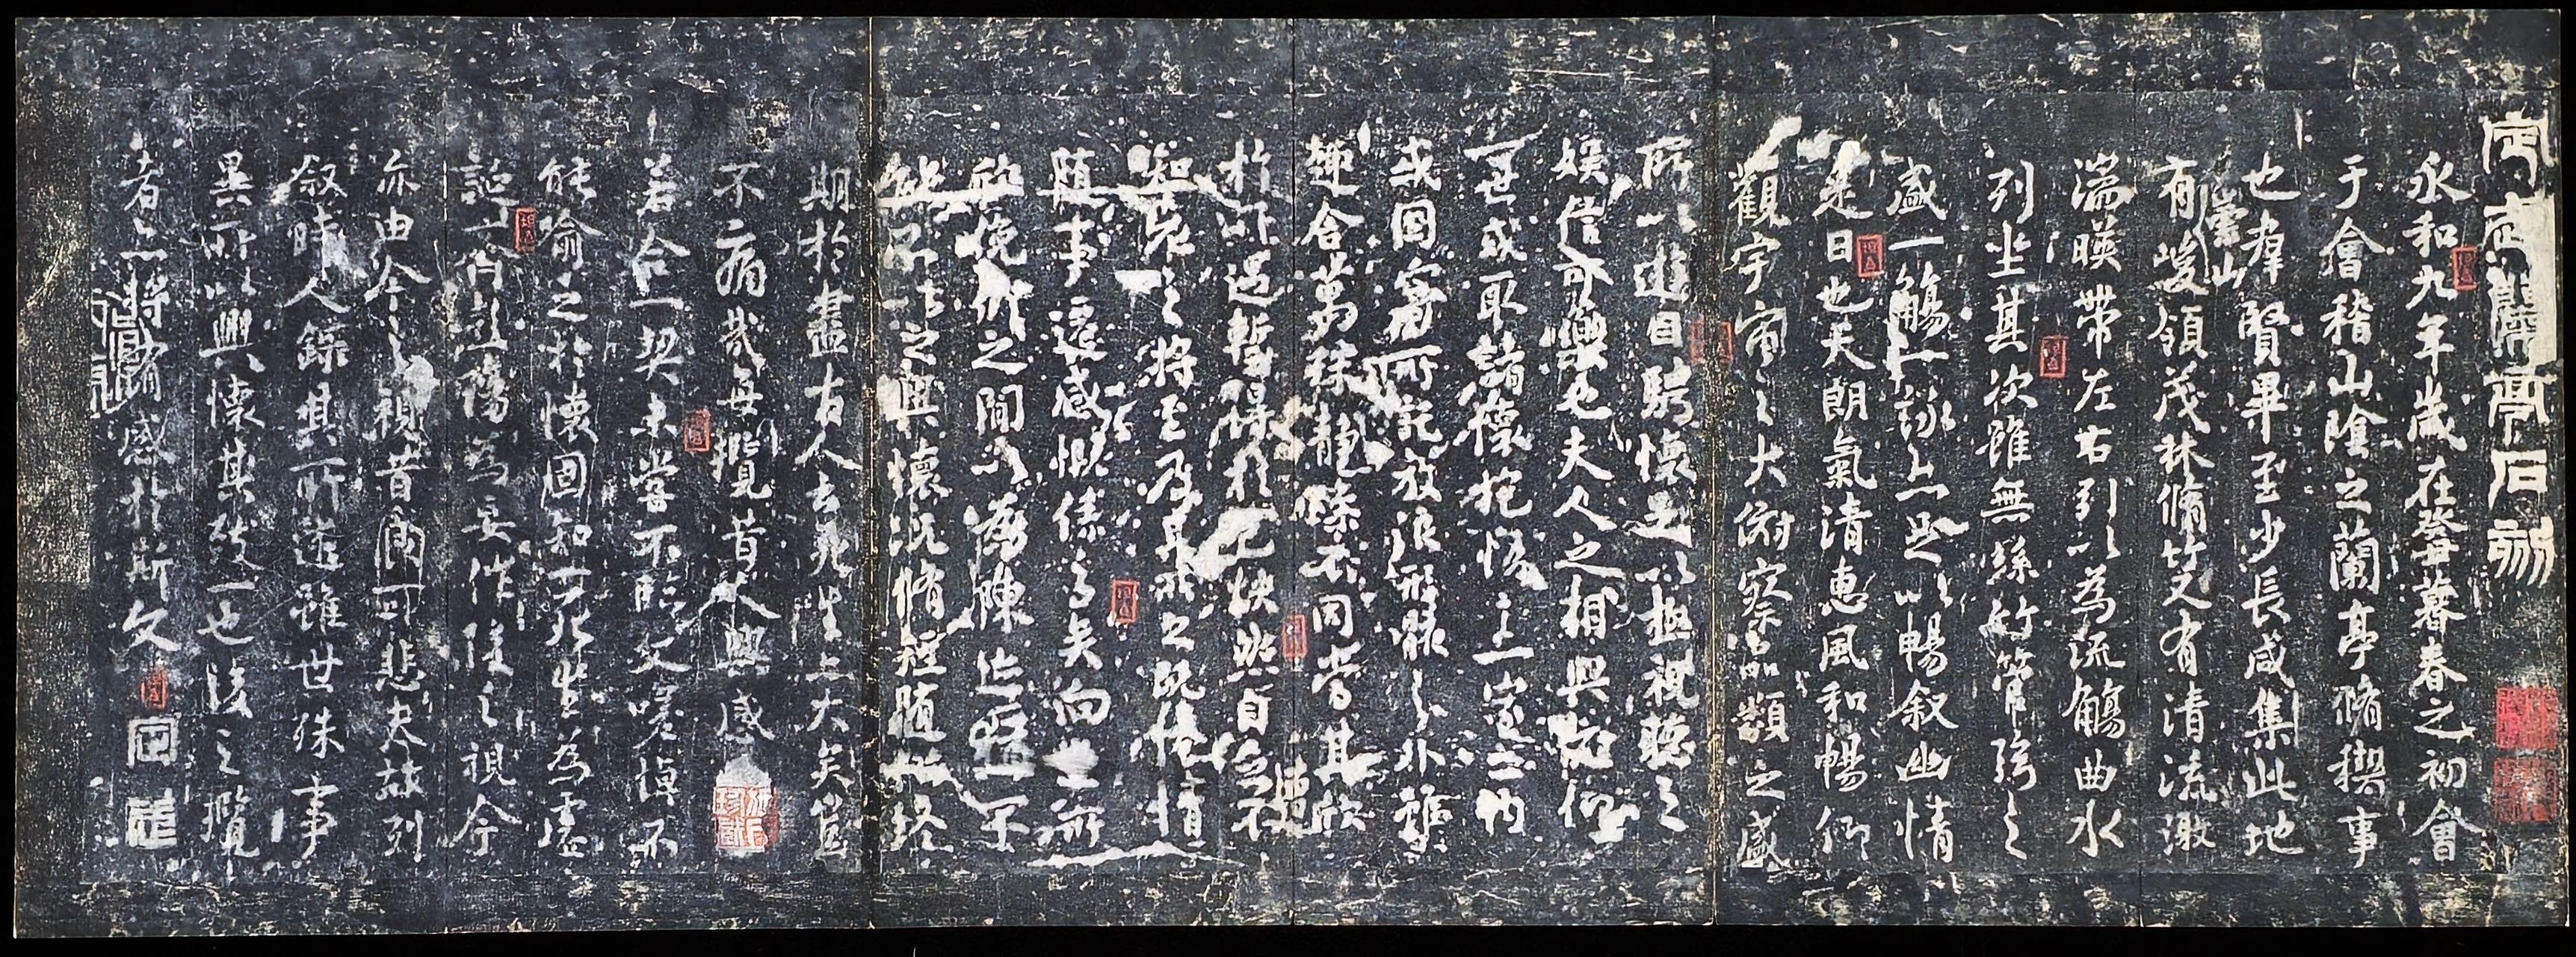 定武蘭亭石刻
永和九年歲在癸丑暮春之初會
于會稽山陰之蘭亭脩稧事
也羣賢畢至少長咸集此地
有崇山峻領茂林脩竹又有清流激
湍暎帶左右引以為流觴曲水
列坐其次雖無絲竹管弦之
盛一觴一詠亦足以暢叙幽情
是日也天朗氣清惠風和暢仰
觀宇宙之大俯察品類之盛
所以遊目騁懷足以極視聽之
娛信可樂也夫人之相與俯仰
一世或取諸懷抱悟言一室之內
或因寄所託放浪形骸之外雖
趣舍萬殊靜躁不同當其欣
於所遇蹔得於己怏然自足不
知老之將至及其所之既惓情
隨事遷感慨係之矣向之所
欣俛仰之間以為陳迹猶不
能不以之興懷況脩短隨化終
期於盡古人云死生亦大矣豈
不痛哉每攬昔人興感
若合一契未嘗不臨文嗟悼不
能喻之於懷固知一死生為虛
誕齊彭殤為妄作後之視今
亦由今之視昔悲夫故列
叙時人錄其所述雖世殊事
異所以興懷其致一也後之攬
者亦將有感於斯文